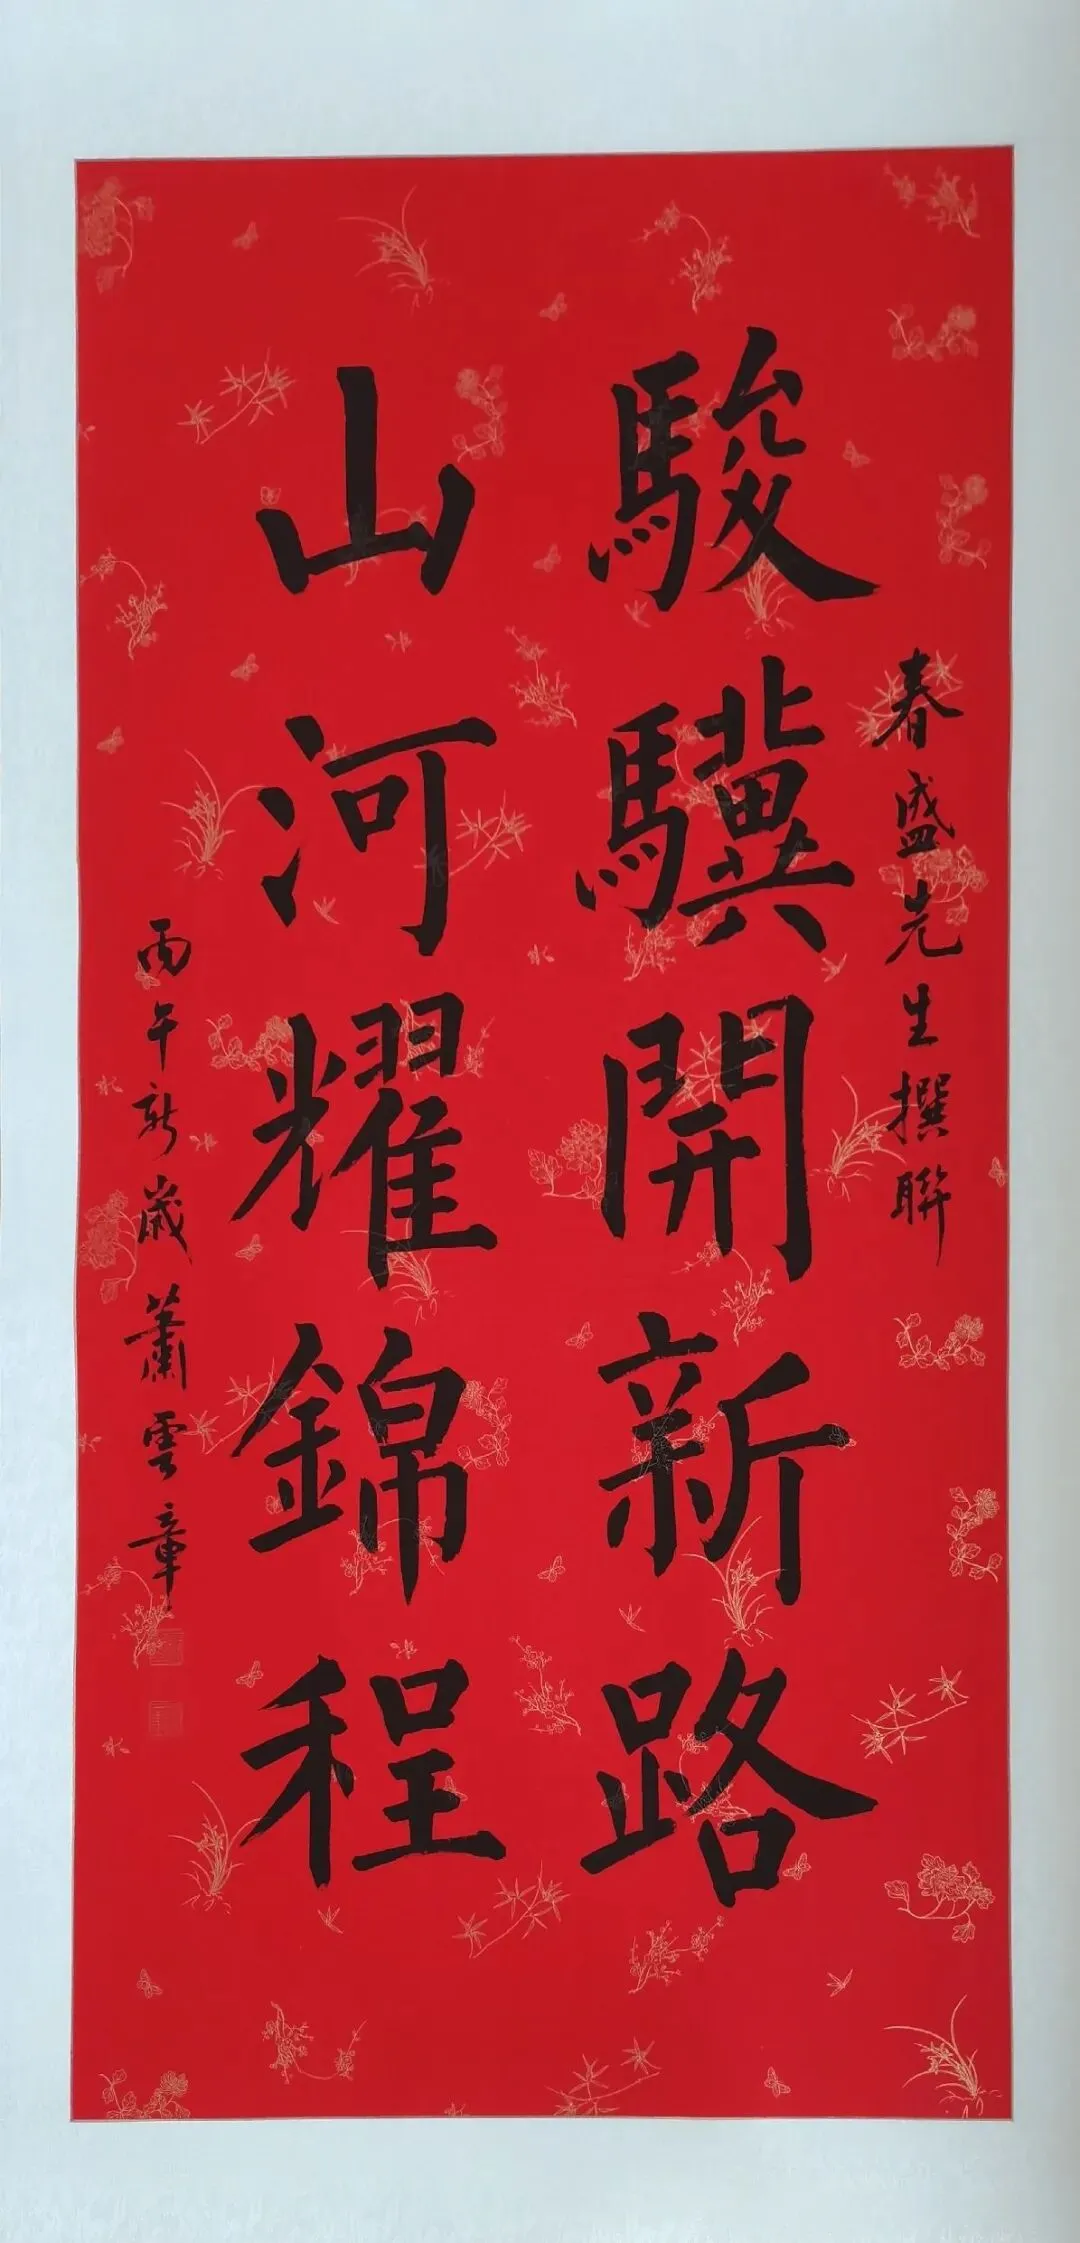 春盛先生撰聯
駿驥開新路
山河耀錦程
丙午新歲蕭雲章